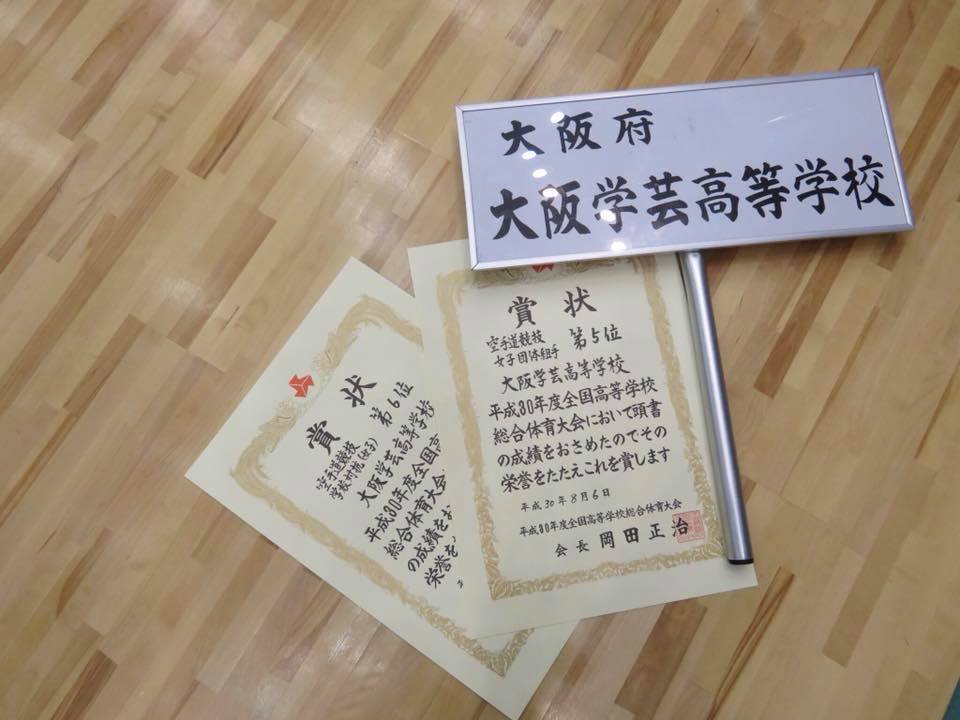 大阪府
大阪学芸高等学校
賞状
空手道競技
女子団体組手
第5位
大阪学芸高等学校
平成30年度全国高等学校
総合体育大会において頭書
の成績をおさめたのでその
栄誉をたたえこれを賞します
平成30年8月6日
平成30年度全国高等学校総合体育大会
会長 岡田正治
賞状
空手道競技
学校対抗(女子)
第6位
大阪学芸高等学校
平成30年度全国高
総合体育大会
の成績をお
栄誉を